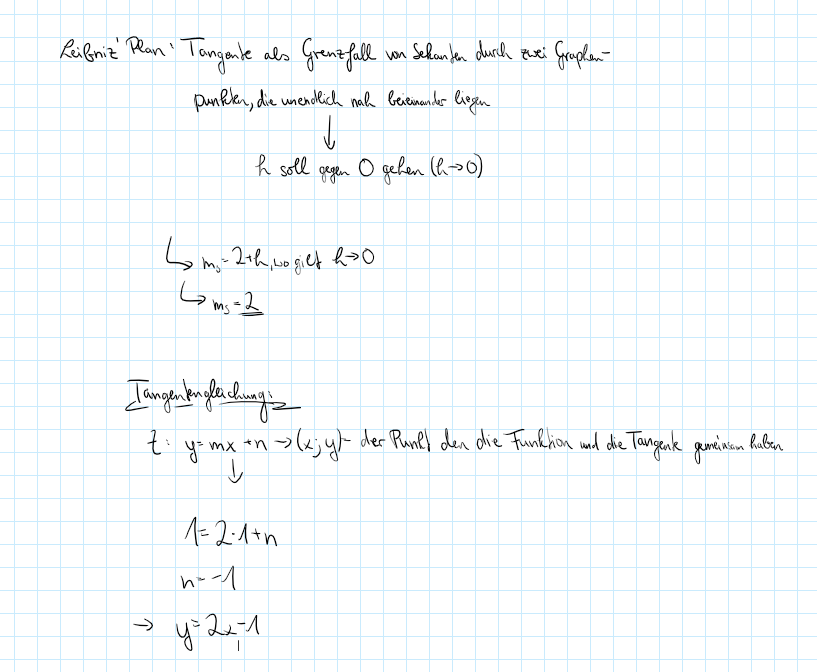 Leibniz' Plan: Tangente als Grenzfall von Sekanten durch zwei Graphen-
punkten, die unendlich nah beieinander liegen
↓
h soll gegen 0 gehen (h→0)
↳ mₛ=2+h, wo gilt h→0
↳ mₛ=2
Tangentengleichung:
t: y=mx+n →(x;y)- der Punkt den die Funktion und die Tangente gemeinsam haben
↓
1=2·1+n
n=-1
→ y=2x-1